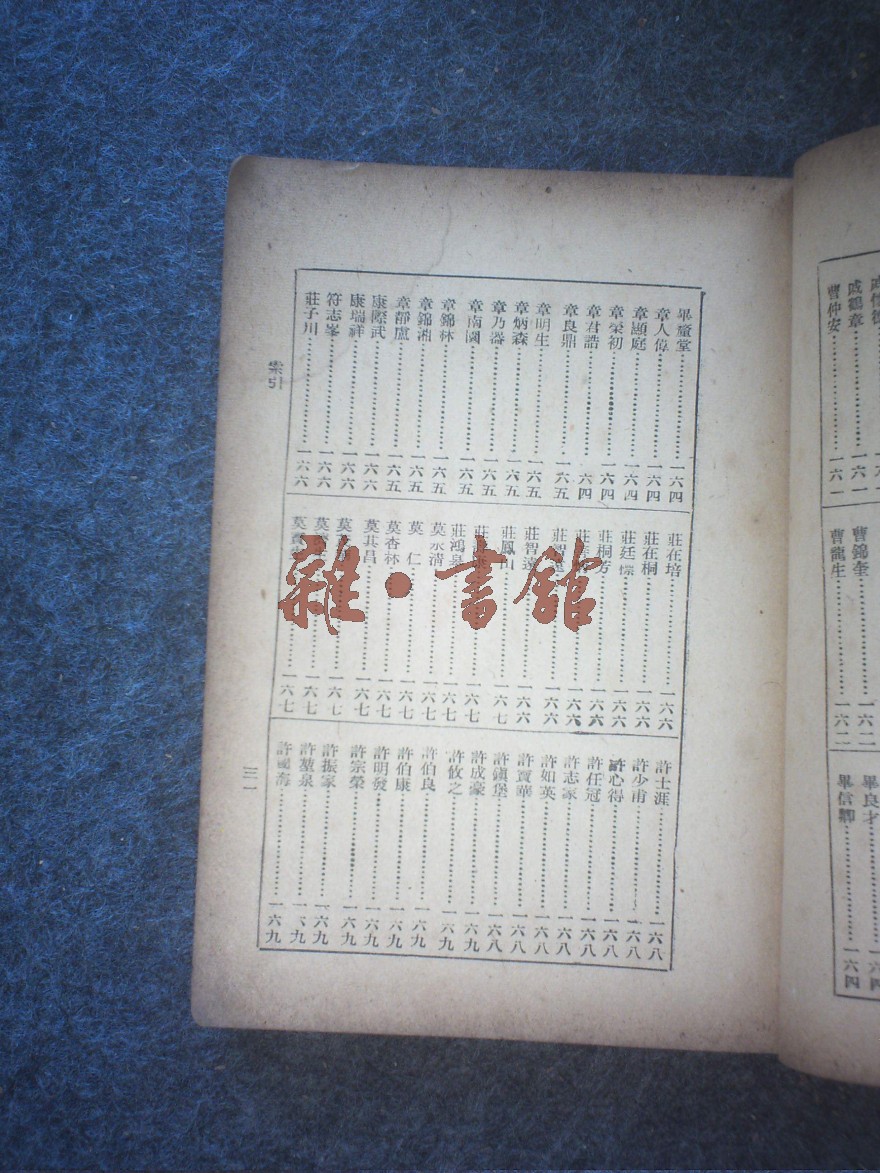 戚鶴章……一六一
曹仲安……一六一
曹錦奎……一六二
曹龍生……一六二
畢良才……一六四
畢信卿……一六四
畢鑾堂……一六四
章人偉……一六四
章顯庭……一六四
章榮初……一六四
章君誥……一六四
章良鼎……一六五
章明生……一六五
章炳森……一六五
章乃器……一六五
章南園……一六五
章錦林……一六五
章錦湘……一六五
章靜盧……一六五
康際武……一六六
康瑞祥……一六六
符志峯……一六六
莊子川……一六六
莊在培……一六六
莊在桐……一六六
莊廷標……一六六
莊桐芳……一六六
莊……一六六
莊智……一六六
莊智遠……一六六
莊鳳山……一六七
莊……一六七
莊鴻泉……一六七
莫永清……一六七
莫 仁……一六七
莫杏林……一六七
莫其昌……一六七
莫……一六七
莫……一六七
莫……一六七
許士涯……一六八
許少甫……一六八
許心得……一六八
許任冠……一六八
許志家……一六八
許如英……一六八
許寶華……一六八
許鎮堡……一六八
許成豪……一六九
許攸之……一六九
許伯良……一六九
許伯康……一六九
許明發……一六九
許宗榮……一六九
許振家……一六九
許堃泉……一六九
許國海……一六九
索引
三一
雜·書館